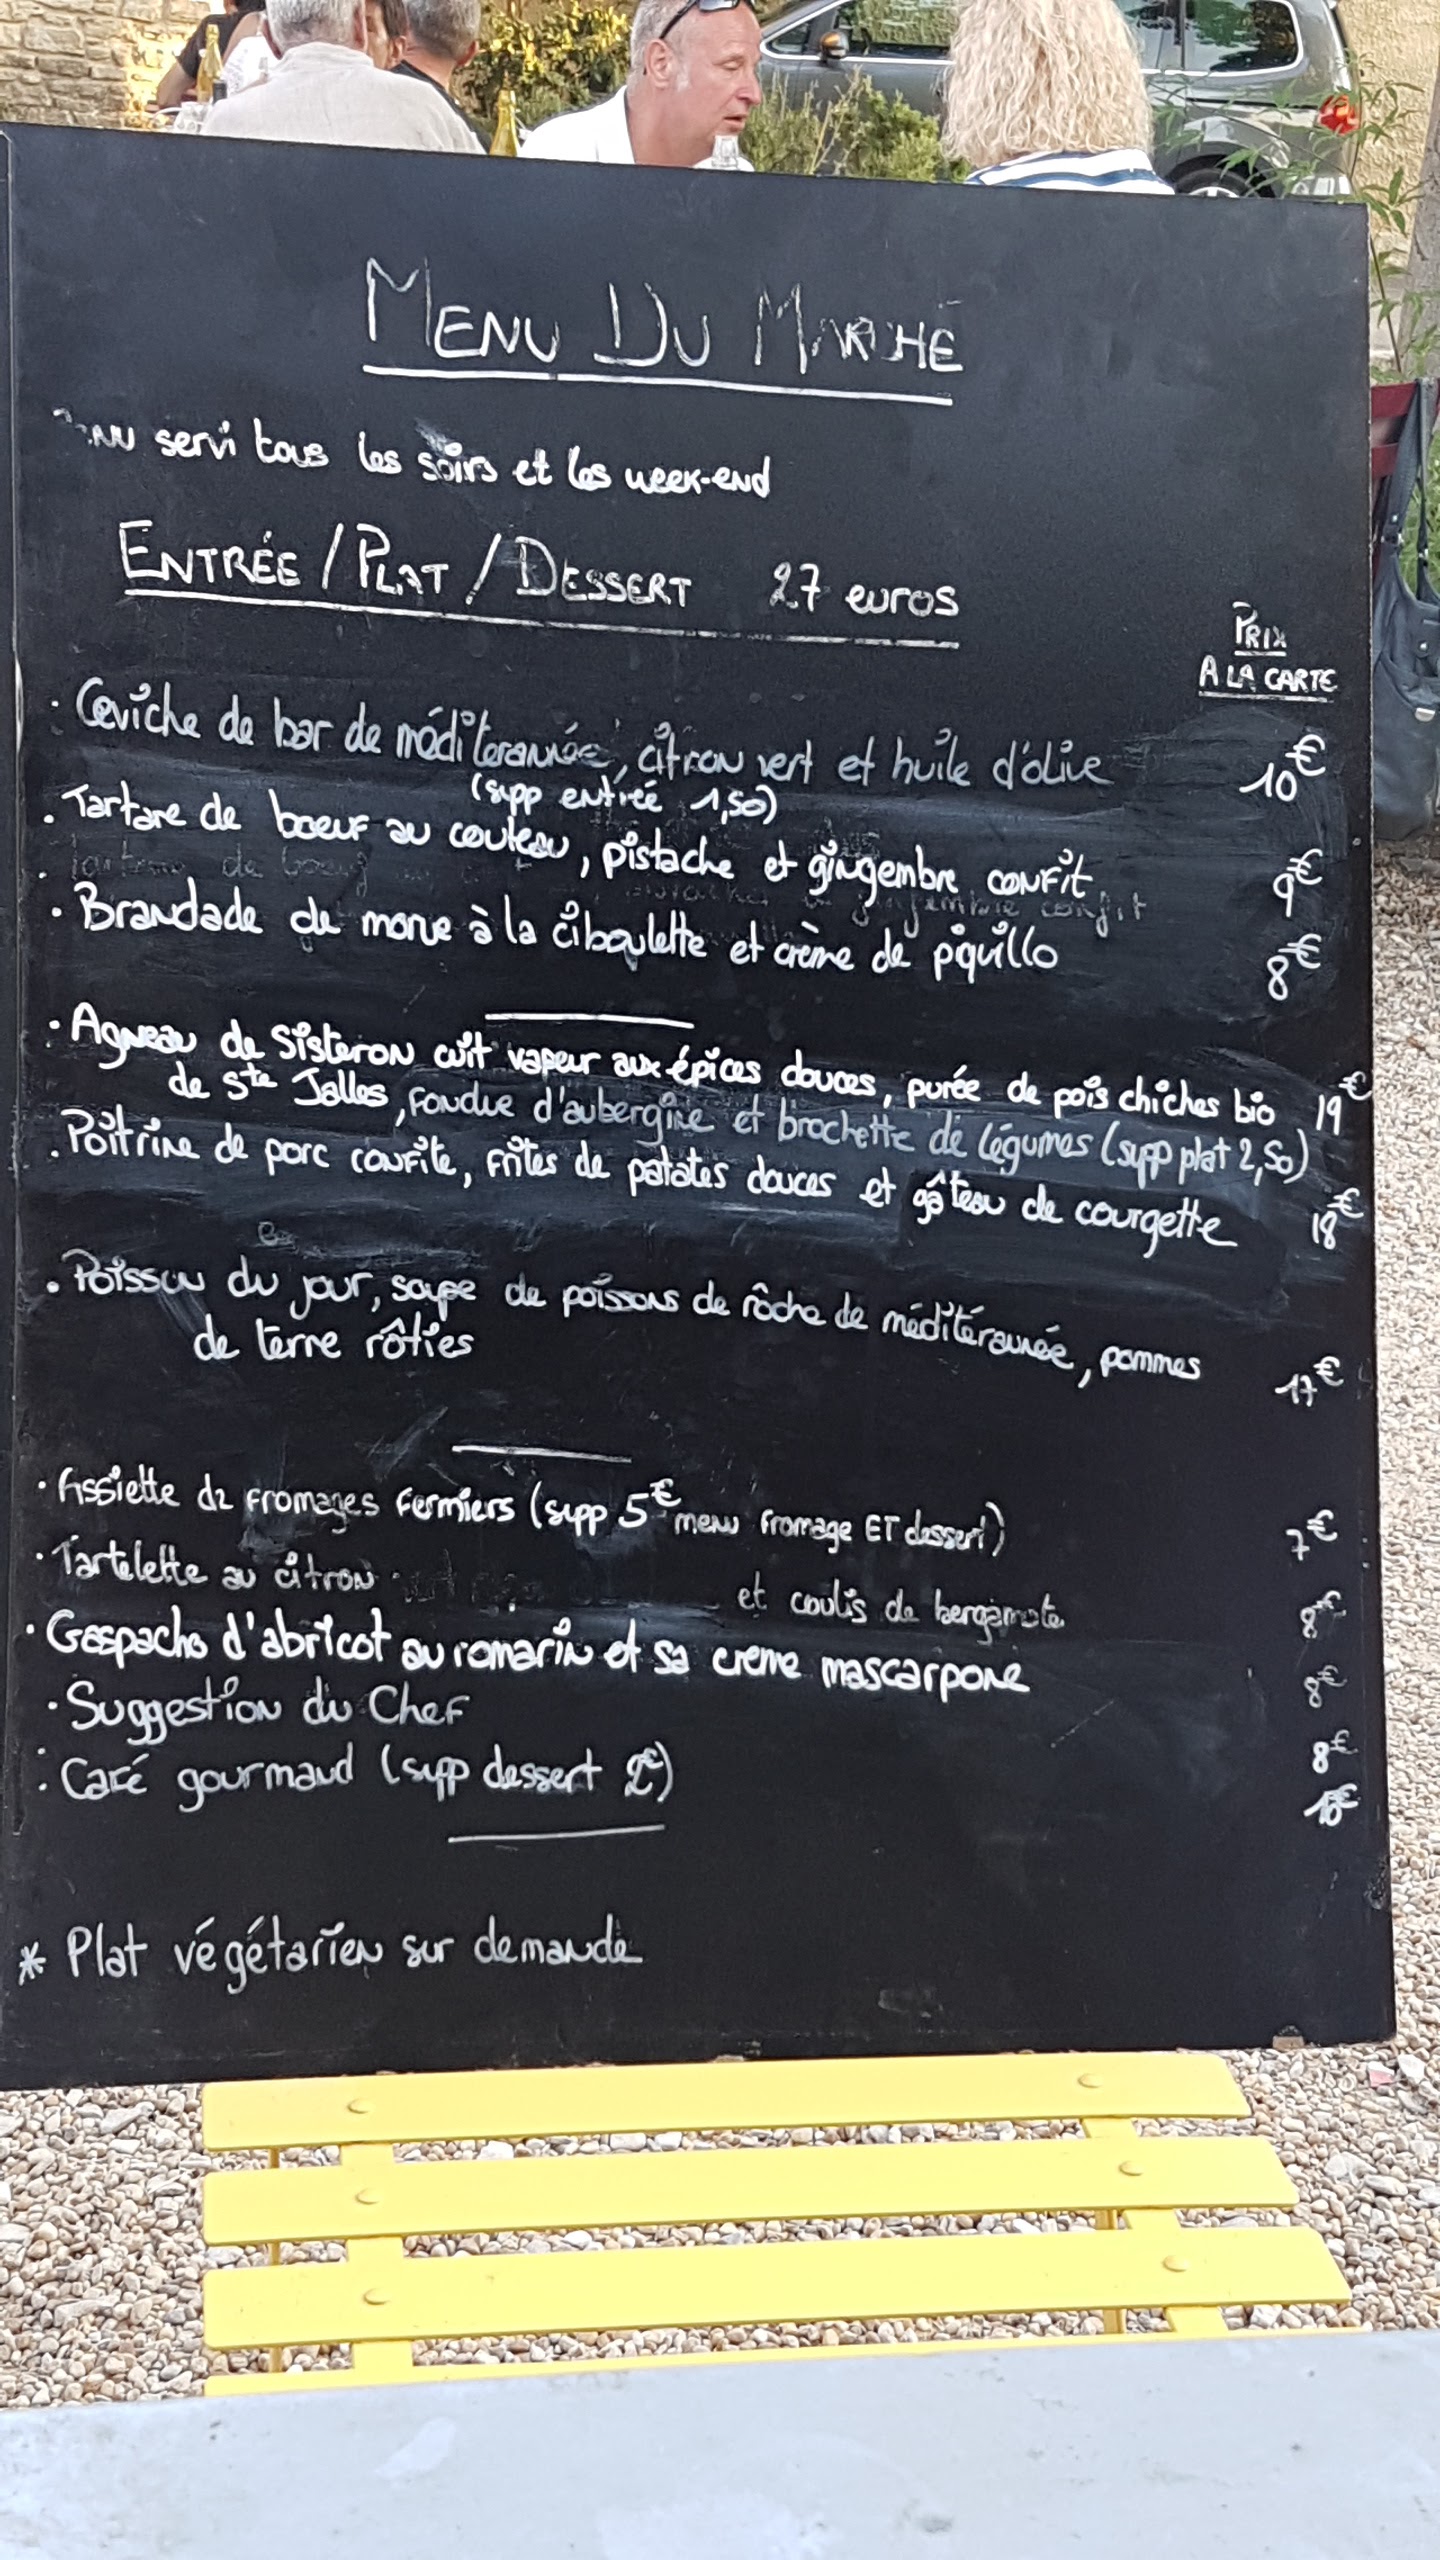 MENU DU MARCHÉ
servi tous les soirs et les week-end
ENTRÉE / PLAT / DESSERT 27 euros
PRIX
A LA CARTE
• Ceviche de bar de méditerannée, citron vert et huile d'olive 10€
(supp entrée 1,50)
• Tartare de boeuf au couteau, pistache et gingembre confit 9€
• Brandade de morue à la ciboulette et crème de piquillo 8€
• Agneau de Sisteron cuit vapeur aux épices douces, purée de pois chiches bio 19€
de Ste Jalles, fondue d'aubergine et brochette de légumes (supp plat 2,50)
• Poitrine de porc confite, frites de patates douces et gâteau de courgette 18€
• Poisson du jour, soupe de poissons de rôche de méditérannée, pommes
de terre rôties 17€
• Assiette de fromages fermiers (supp 5€ menu fromage ET dessert) 7€
• Tartelette au citron et coulis de bergamote 8€
• Gaspacho d'abricot au romarin et sa creme mascarpone 8€
• Suggestion du Chef 8€
• Café gourmand (supp dessert 2€) 10€
* Plat végétarien sur demande